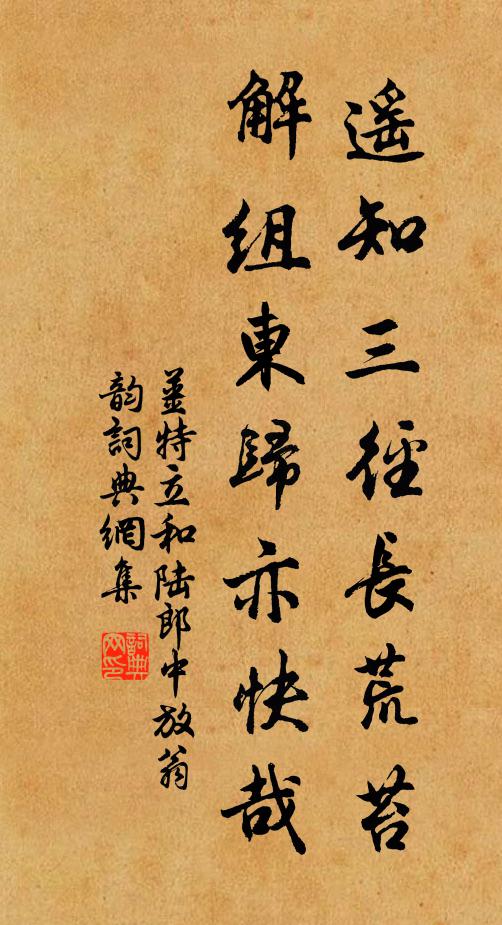 遥知三徑長荒苔
解組東歸亦快哉
姜特立和陆郎中放翁
韵詞典網集
詞典网印